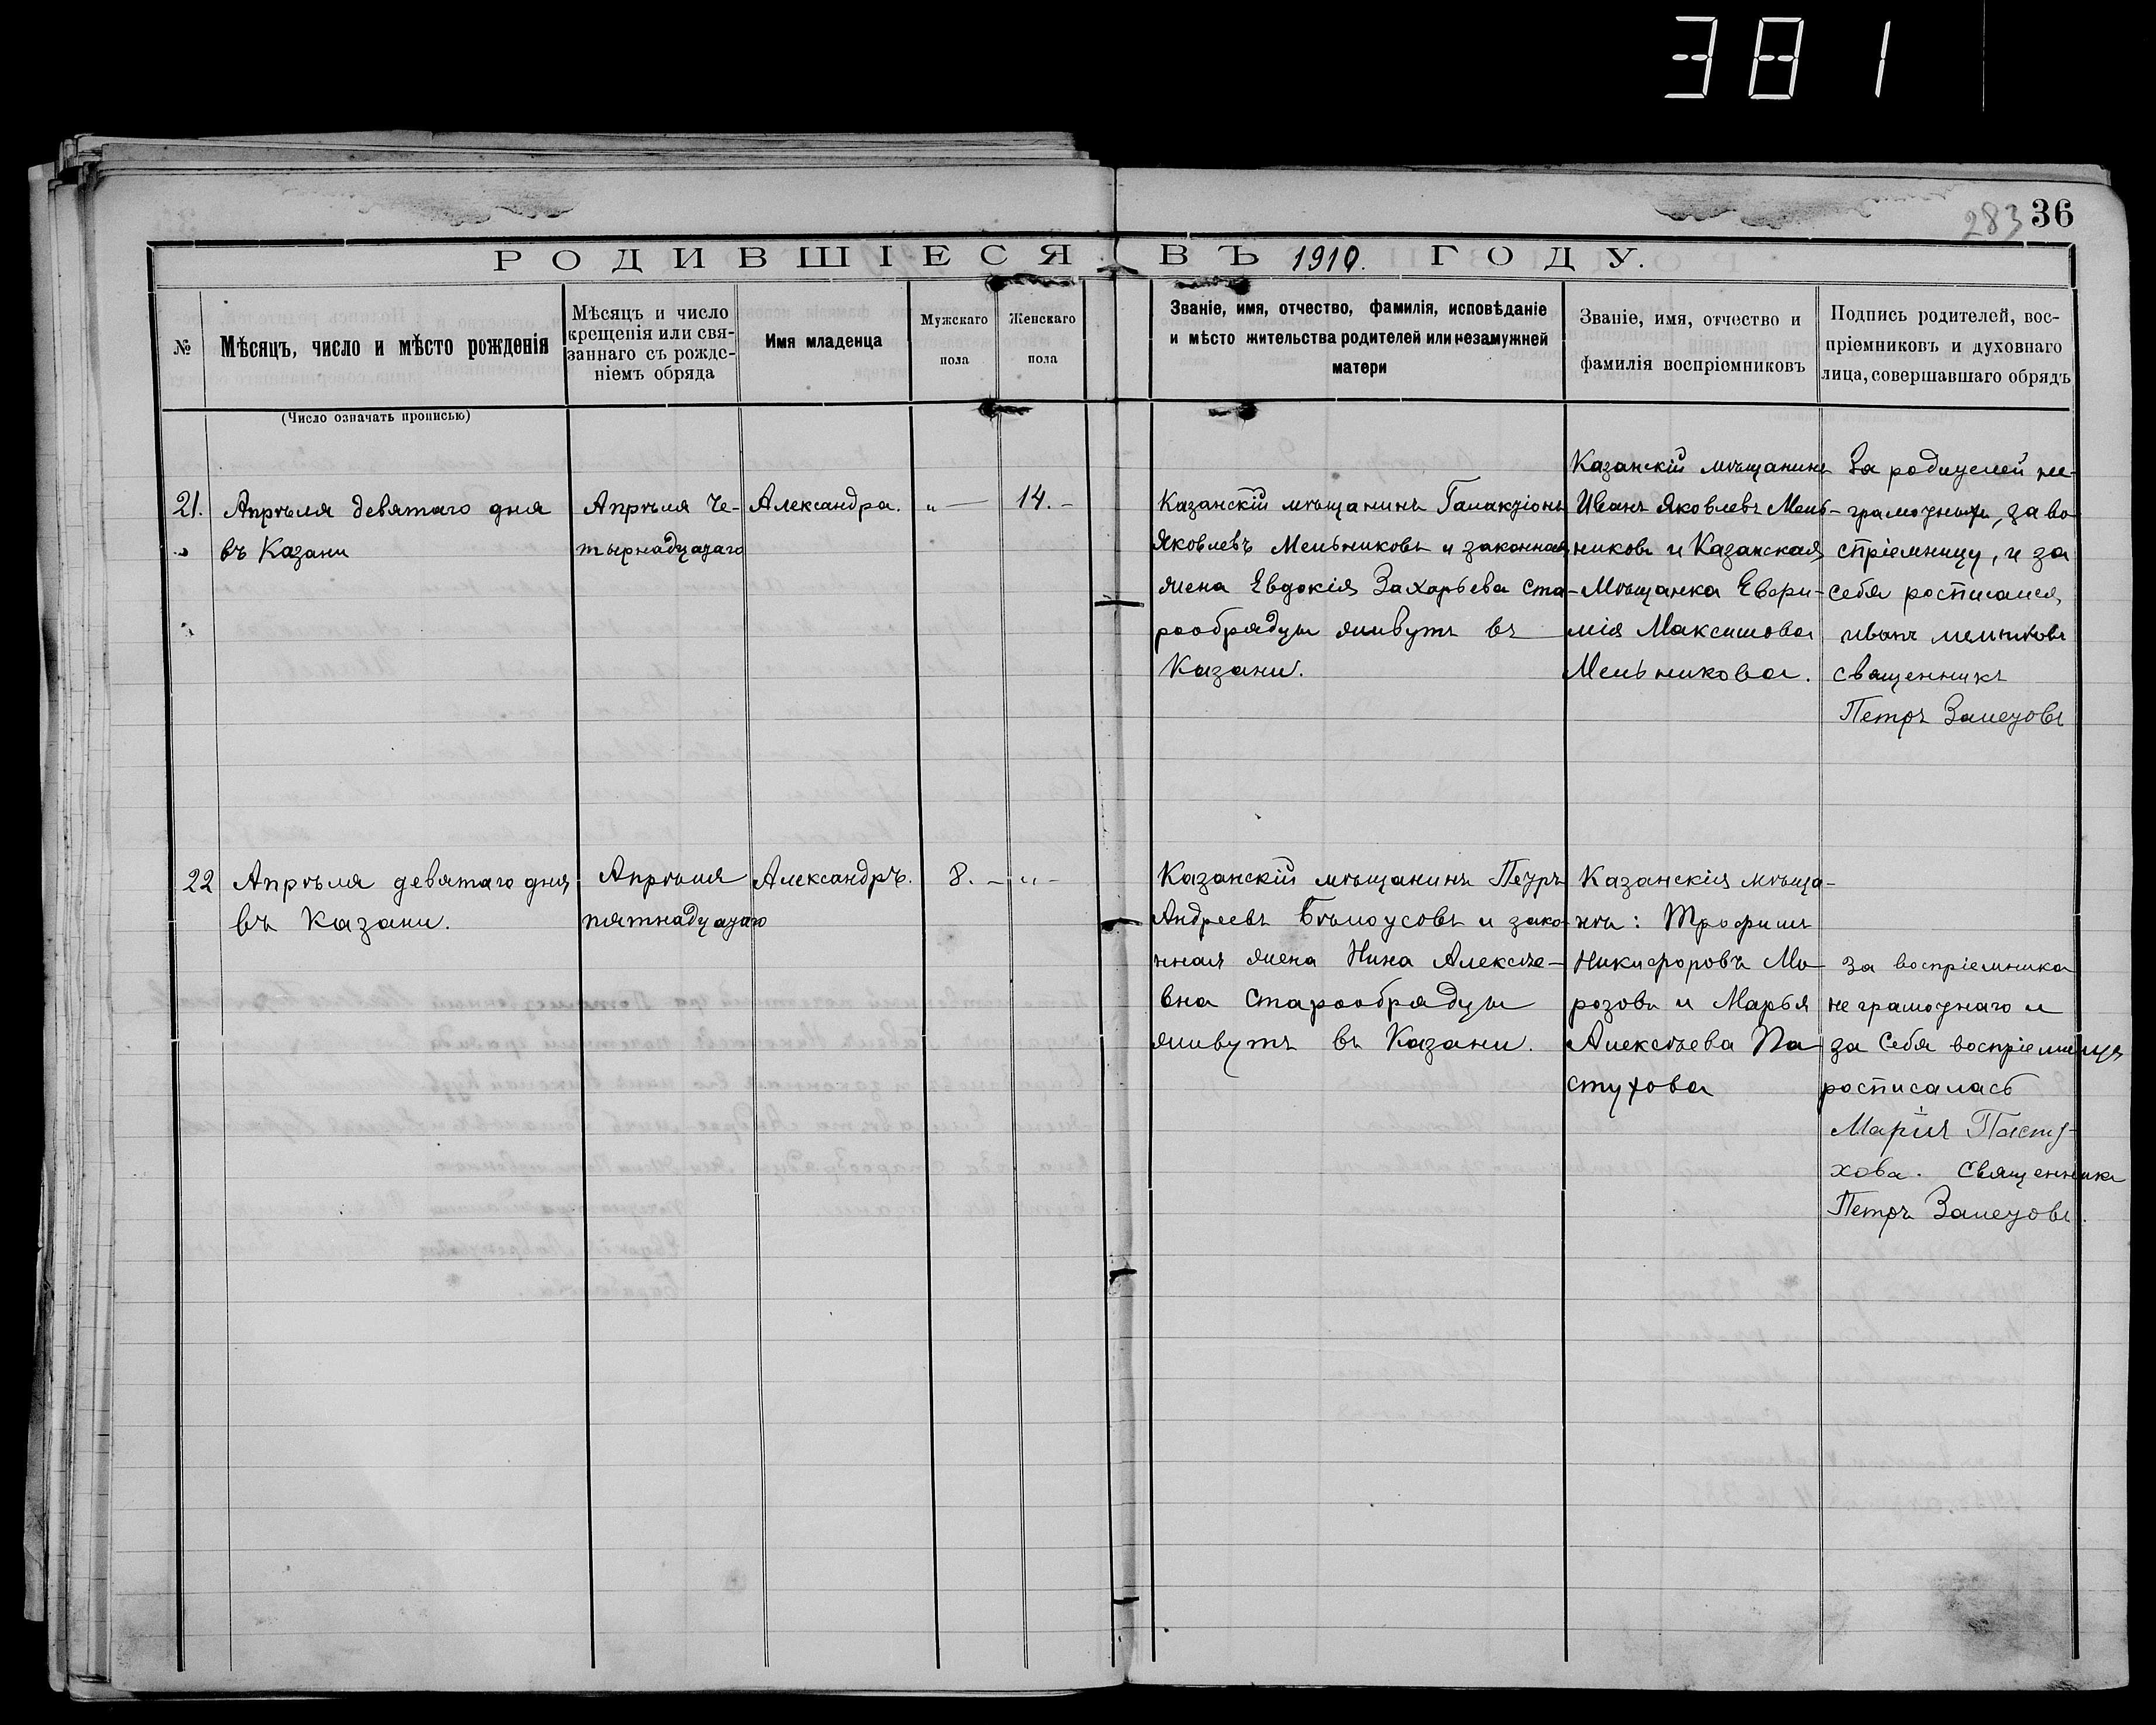 381
283 36
РОДИВШІЕСЯ ВЪ 1910. ГОДУ.
№
Мѣсяцъ, число и мѣсто рожденія
Мѣсяцъ и число
крещенія или свя-
заннаго съ рожде-
ніемъ обряда
Имя младенца
Мужскаго
пола
Женскаго
пола
Званіе, имя, отчество, фамилія, исповѣданіе
и мѣсто жительства родителей или незамужней
матери
Званіе, имя, отчество и
фамилія воспріемниковъ
Подпись родителей, вос-
пріемниковъ и духовнаго
лица, совершавшаго обрядъ
(Число означать прописью)
21.
Апрѣля девятаго дня
въ Казани
Апрѣля че-
тырнадцатаго
Александра.
„ —
14. -
Казанскій мѣщанинъ Галактіонъ
Яковлевъ Мельниковъ и законная
жена Евдокія Захарьева ста-
рообрядцы живутъ въ
Казани.
Казанскій мѣщанинъ
Иванъ Яковлевъ Мель-
никовъ и Казанская
Мѣщанка Евфи-
мія Максимова
Мельникова.
За родителей не-
грамотныхъ, за во
спріемницу, и за
себя росписался
иванъ мельниковъ
священникъ
Петръ Залетовъ
22
Апрѣля девятаго дня
въ Казани.
Апрѣля
пятнадцатаго
Александръ.
8. -
„ -
Казанскій мѣщанинъ Петръ
Андреевъ Бѣлоусовъ и зако-
нная жена Нина Алексѣе-
вна Старообрядцы
живутъ въ Казани.
Казанскія мѣща-
нѣ: Трофимъ
Никифоровъ Мо
розовъ и Марья
Алексѣева Па
стухова
за воспріемника
не грамотнаго и
за Себя воспріемница
росписалась
Марія Пасту-
хова. Священникъ
Петръ Залетовъ.